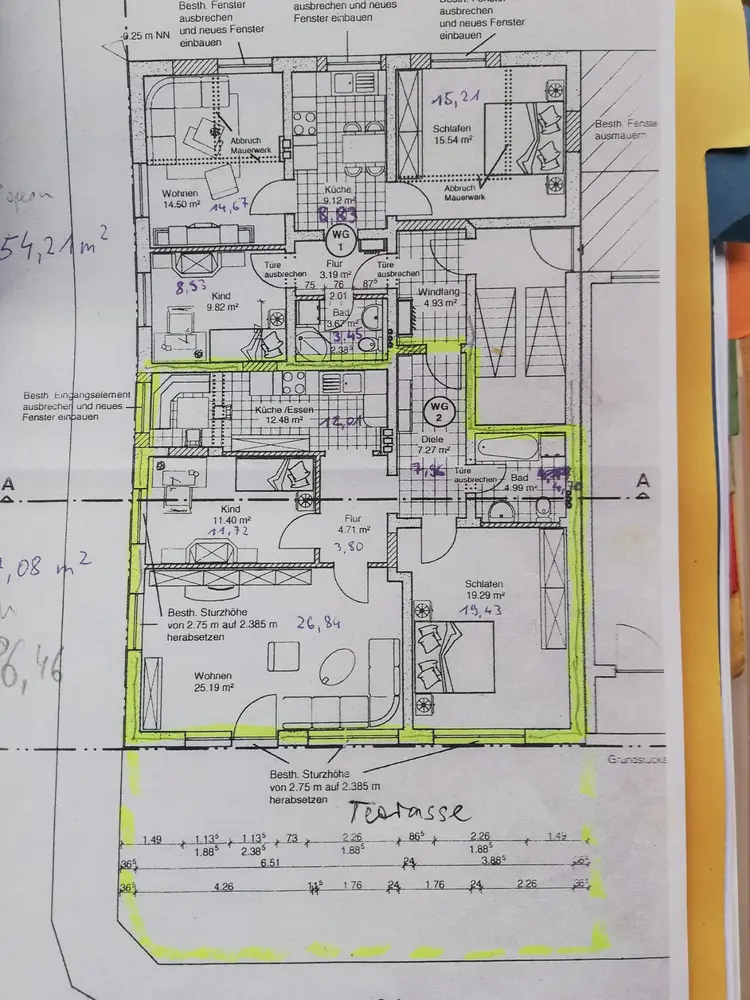 Besth. Fenster
ausbrechen
und neues Fenster
einbauen
ausbrechen und neues
Fenster einbauen
ausbrechen
und neues Fenster
einbauen
-0.25 m NN
Besth. Fenste
ausmauern
Abbruch
Mauerwerk
Wohnen
14.50 m²
14,67
Küche
9.12 m²
8,83
15,21
Schlafen
15.54 m²
Abbruch
Mauerwerk
54,21 m²
WG
1
Flur
3.19 m²
Türe
ausbrechen
Türe
ausbrechen
75 76 87⁵
2.01
8,93
Kind
9.82 m²
Bad
3.67 m²
3.45
2.38⁵
Windfang
4.93 m²
Besth. Eingangselement
ausbrechen und neues
Fenster einbauen
Küche /Essen
12.48 m²
12,01
WG
2
Diele
7.27 m²
7,96
Türe
ausbrechen
Bad
4.99 m²
A
A
Kind
11.40 m²
11,72
Flur
4.71 m²
3,80
,08 m²
Schlafen
19.29 m²
19,43
Besth. Sturzhöhe
von 2.75 m auf 2.385 m
herabsetzen
26,84
86,46
Wohnen
25.19 m²
Grundstücks
Besth. Sturzhöhe
von 2.75 m auf 2.385 m
herabsetzen
Terrasse
1.49 1.13⁵ 1.13⁵ 73 2.26 86⁵ 2.26 1.49
1.88⁵ 2.38⁵ 1.88⁵ 1.88⁵
36⁵ 6.51 24 3.88⁵ 36⁵
36⁵ 4.26 11⁵ 1.76 24 1.76 24 2.26 36⁵